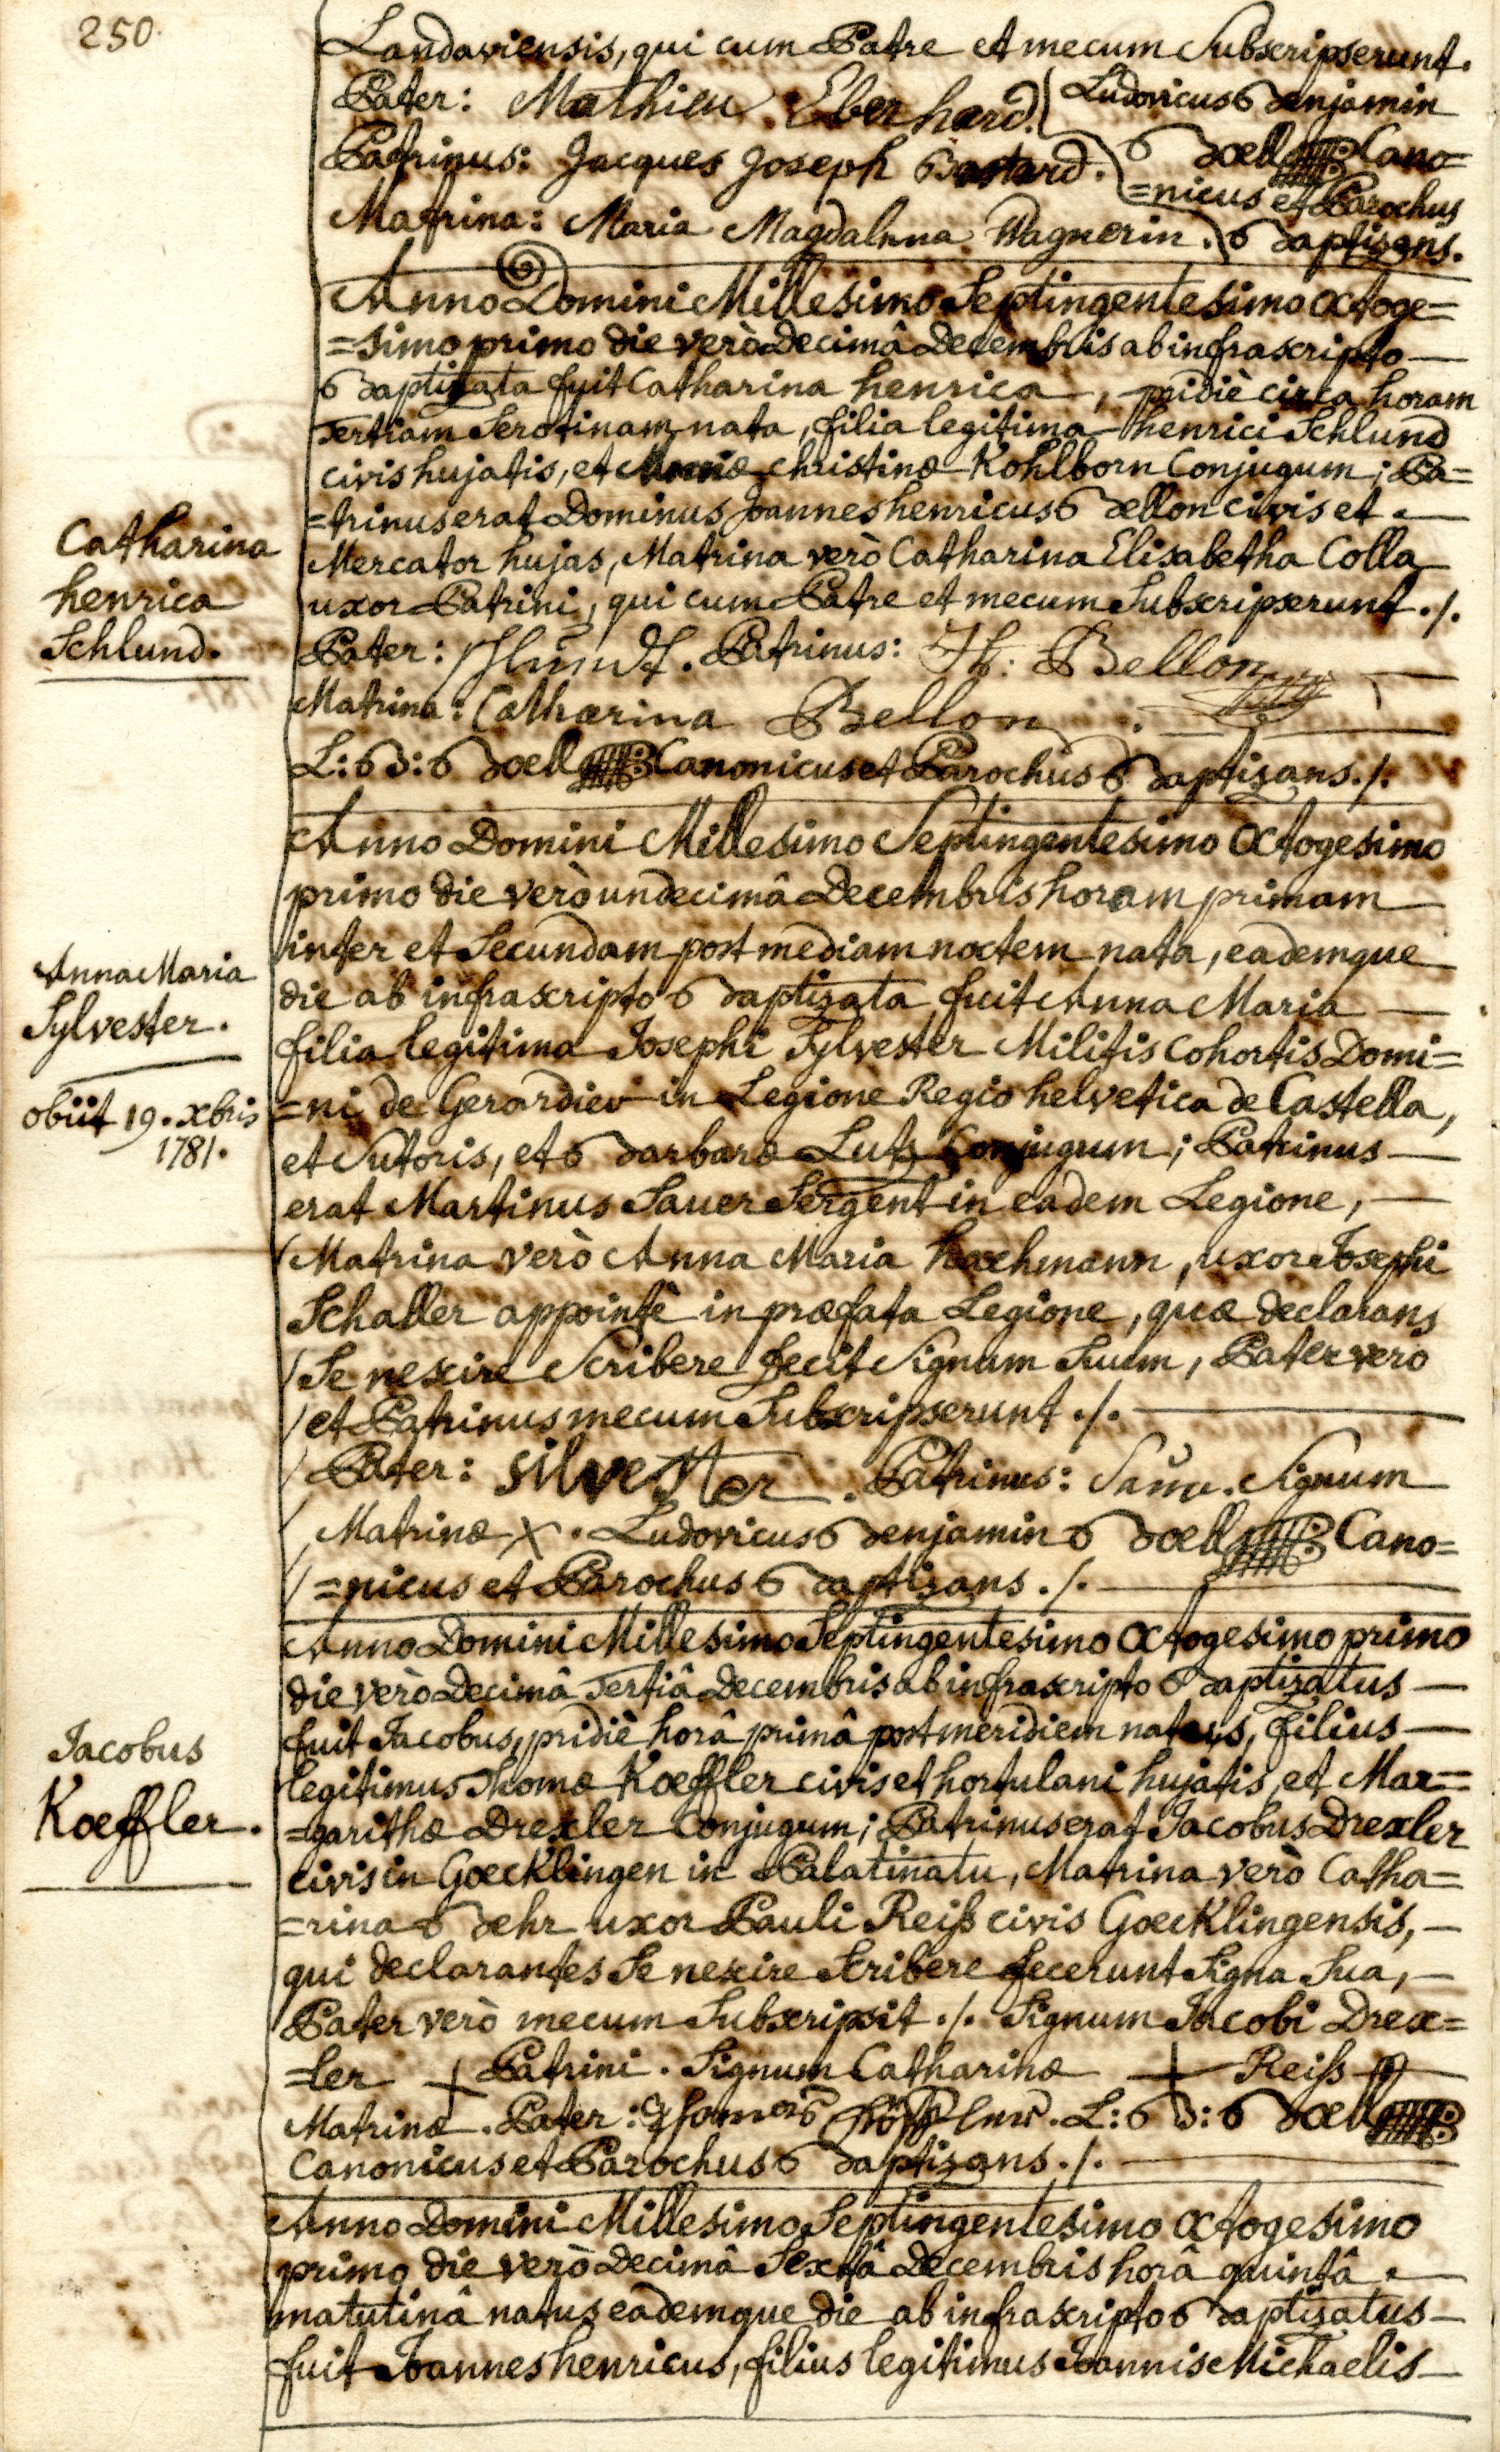 250.
Landaviensis, qui cum Patre et mecum Subscripserunt.
Pater: Mathieu Eberhard. Ludovicus Benjamin
Patrinus: Jacques Joseph Bastard. Boell Cano=
=nicus et Parochus
Matrina: Maria Magdalena Wagnerin. Baptisans.
Anno Domini Millesimo Septingentesimo Octoge=
=simo primo die verò decimâ Decembris ab infrascripto
Baptizata fuit Catharina henrica, pridiè circa horam
tertiam Serotinam nata, filia legitima henrici Schlund
civis hujatis, et Annæ Christinæ Kohlborn Conjugum; Pa=
=trinus erat Dominus Joannes henricus Bellon civis et
Mercator hujas, Matrina verò Catharina Elisabetha Colla
uxor Patrini, qui cum Patre et mecum Subscripserunt ./.
Catharina
henrica
Schlund.
Pater: Schlundt. Patrinus: Jh: Bellon
Matrina: Catharina Bellon
L: B: Boell Canonicus et Parochus Baptizans ./.
Anno Domini Millesimo Septingentesimo Octogesimo
primo die verò undecimâ Decembris horam primam
inter et Secundam post mediam noctem nata, eademque
die ab infrascripto Baptizata fuit Anna Maria
Anna Maria
Sylvester.
obiit 19. Xbris
1781.
filia legitima Josephi Sylvester Militis Cohortis Domi=
=ni de Gerardier in Legione Regio helvetica de Castella,
et Sutoris, et Barbaræ Lutz Conjugum; Patrinus
erat Martinus Sauer Sergent in eadem Legione,
Matrina verò Anna Maria hochmann, uxor Josephi
Schaller appointè in præfata Legione, quæ declarans
Se nescire Scribere fecit Signum Suum, Pater verò
et Patrinus mecum Subscripserunt ./.
Pater: silvester. Patrinus: Saur. Signum
Matrinæ X. Ludovicus Benjamin Boell Cano=
=nicus et Parochus Baptizans ./.
Anno Domini Millesimo Septingentesimo Octogesimo primo
die verò decimâ tertiâ Decembris ab infrascripto Baptizatus
fuit Jacobus, pridiè horâ primâ post meridiem natus, filius
Jacobus
Koeffler.
legitimus Thomæ Koeffler civis et hortulani hujatis, et Mar=
=garithæ Drexler Conjugum; Patrinus erat Jacobus Drexler
civis in Goecklingen in Palatinatu, Matrina verò Catha=
=rina Behr uxor Pauli Reiß civis Goecklingensis,
qui declarantes Se nescire Scribere fecerunt Signa Sua,
Pater verò mecum Subscripsit ./. Signum Jacobi Drex=
=ler + Patrini. Signum Catharinæ + Reiß
Matrinæ. Pater: L: B: Boell
Canonicus et Parochus Baptizans ./.
Anno Domini Millesimo Septingentesimo Octogesimo
primo die verò decimâ Sextâ Decembris horâ quintâ
matutinâ natus eademque die ab infrascripto Baptizatus
fuit Joannes henricus, filius legitimus Joannis Michaelis